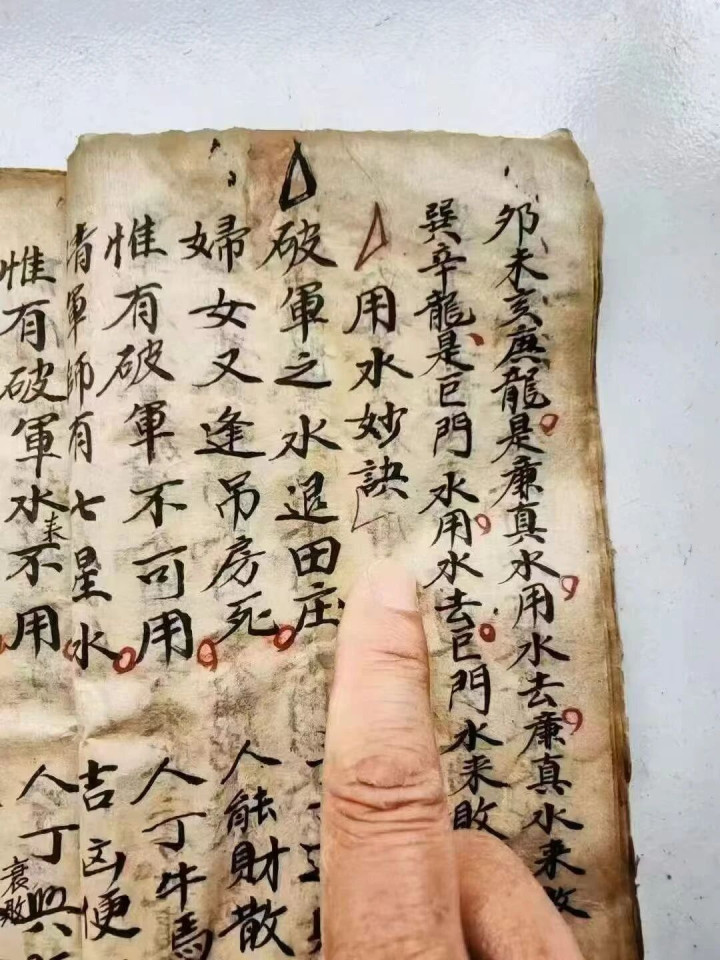 卯未亥庚龍是廉真水用水去廉真水来敗
巽辛龍是巨門水用水去巨門水来敗
用水妙訣
破軍之水退田庄
婦女又逢吊房死 人能財散
惟有破軍不可用 人丁牛馬
清軍師有七星水 吉凶便
惟有破軍水来不用 人丁興
衰敗